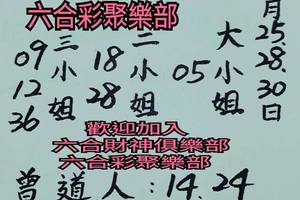 六合彩聚樂部
月25.28.30日
大小姐
05
二小姐
18
28
三小姐
09
12
36
歡迎加入
六合財神俱樂部
六合彩聚樂部
曾道人:14.24